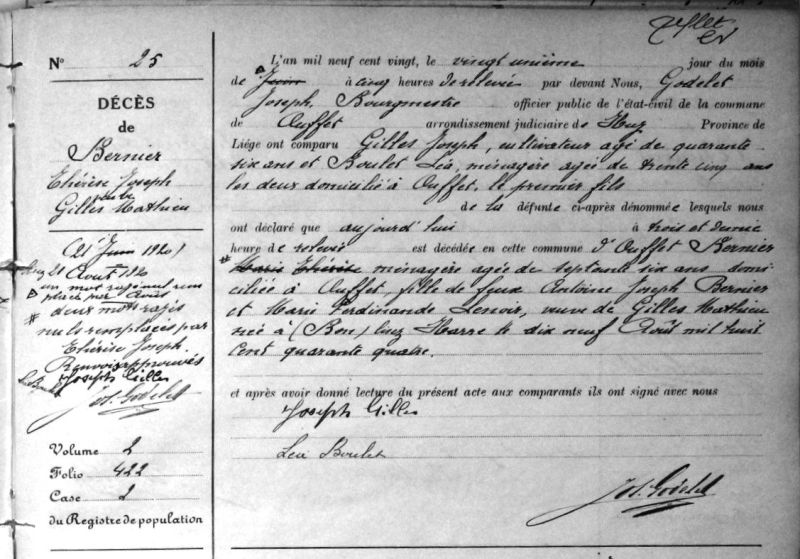 Nº 25
DÉCÈS
de
Bernier
Thérèse Joseph
veuve
Gilles Mathieu
(21 Juin 1920)
21 Août 1920
un mot rayé nul rem
placé par Août
deux mots rayés
nuls remplacés par
Thérèse Joseph
Renvois approuvés
Joseph Gilles
Lea Boulet
Jos. Godelet
Volume 2
Folio 422
Case 2
du Registre de population
L'an mil neuf cent vingt, le vingt unième jour du mois
de Juin à cinq heures de relevée par devant Nous, Godelet
Joseph, Bourgmestre officier public de l'état-civil de la commune
de Ouffet arrondissement judiciaire de Huy Province de
Liége ont comparu Gilles Joseph, cultivateur agé de quarante
six ans et Boulet Léa, ménagère agée de trente cinq ans
les deux domicilié à Ouffet, le premier fils
de la défunte ci-après dénommée lesquels nous
ont déclaré que aujourd'hui à trois et demie
heure de relevée est décédée en cette commune d'Ouffet Bernier
Marie Thérèse ménagère agée de septante six ans domi
ciliée à Ouffet, fille de feux Antoine Joseph Bernier
et Marie Ferdinande Lenoir, veuve de Gilles Mathieu
née à (Bon) lez Harre le dix neuf Août mil huit
cent quarante quatre.
et après avoir donné lecture du présent acte aux comparants ils ont signé avec nous
Joseph Gilles
Lea Boulet
Jos. Godelet